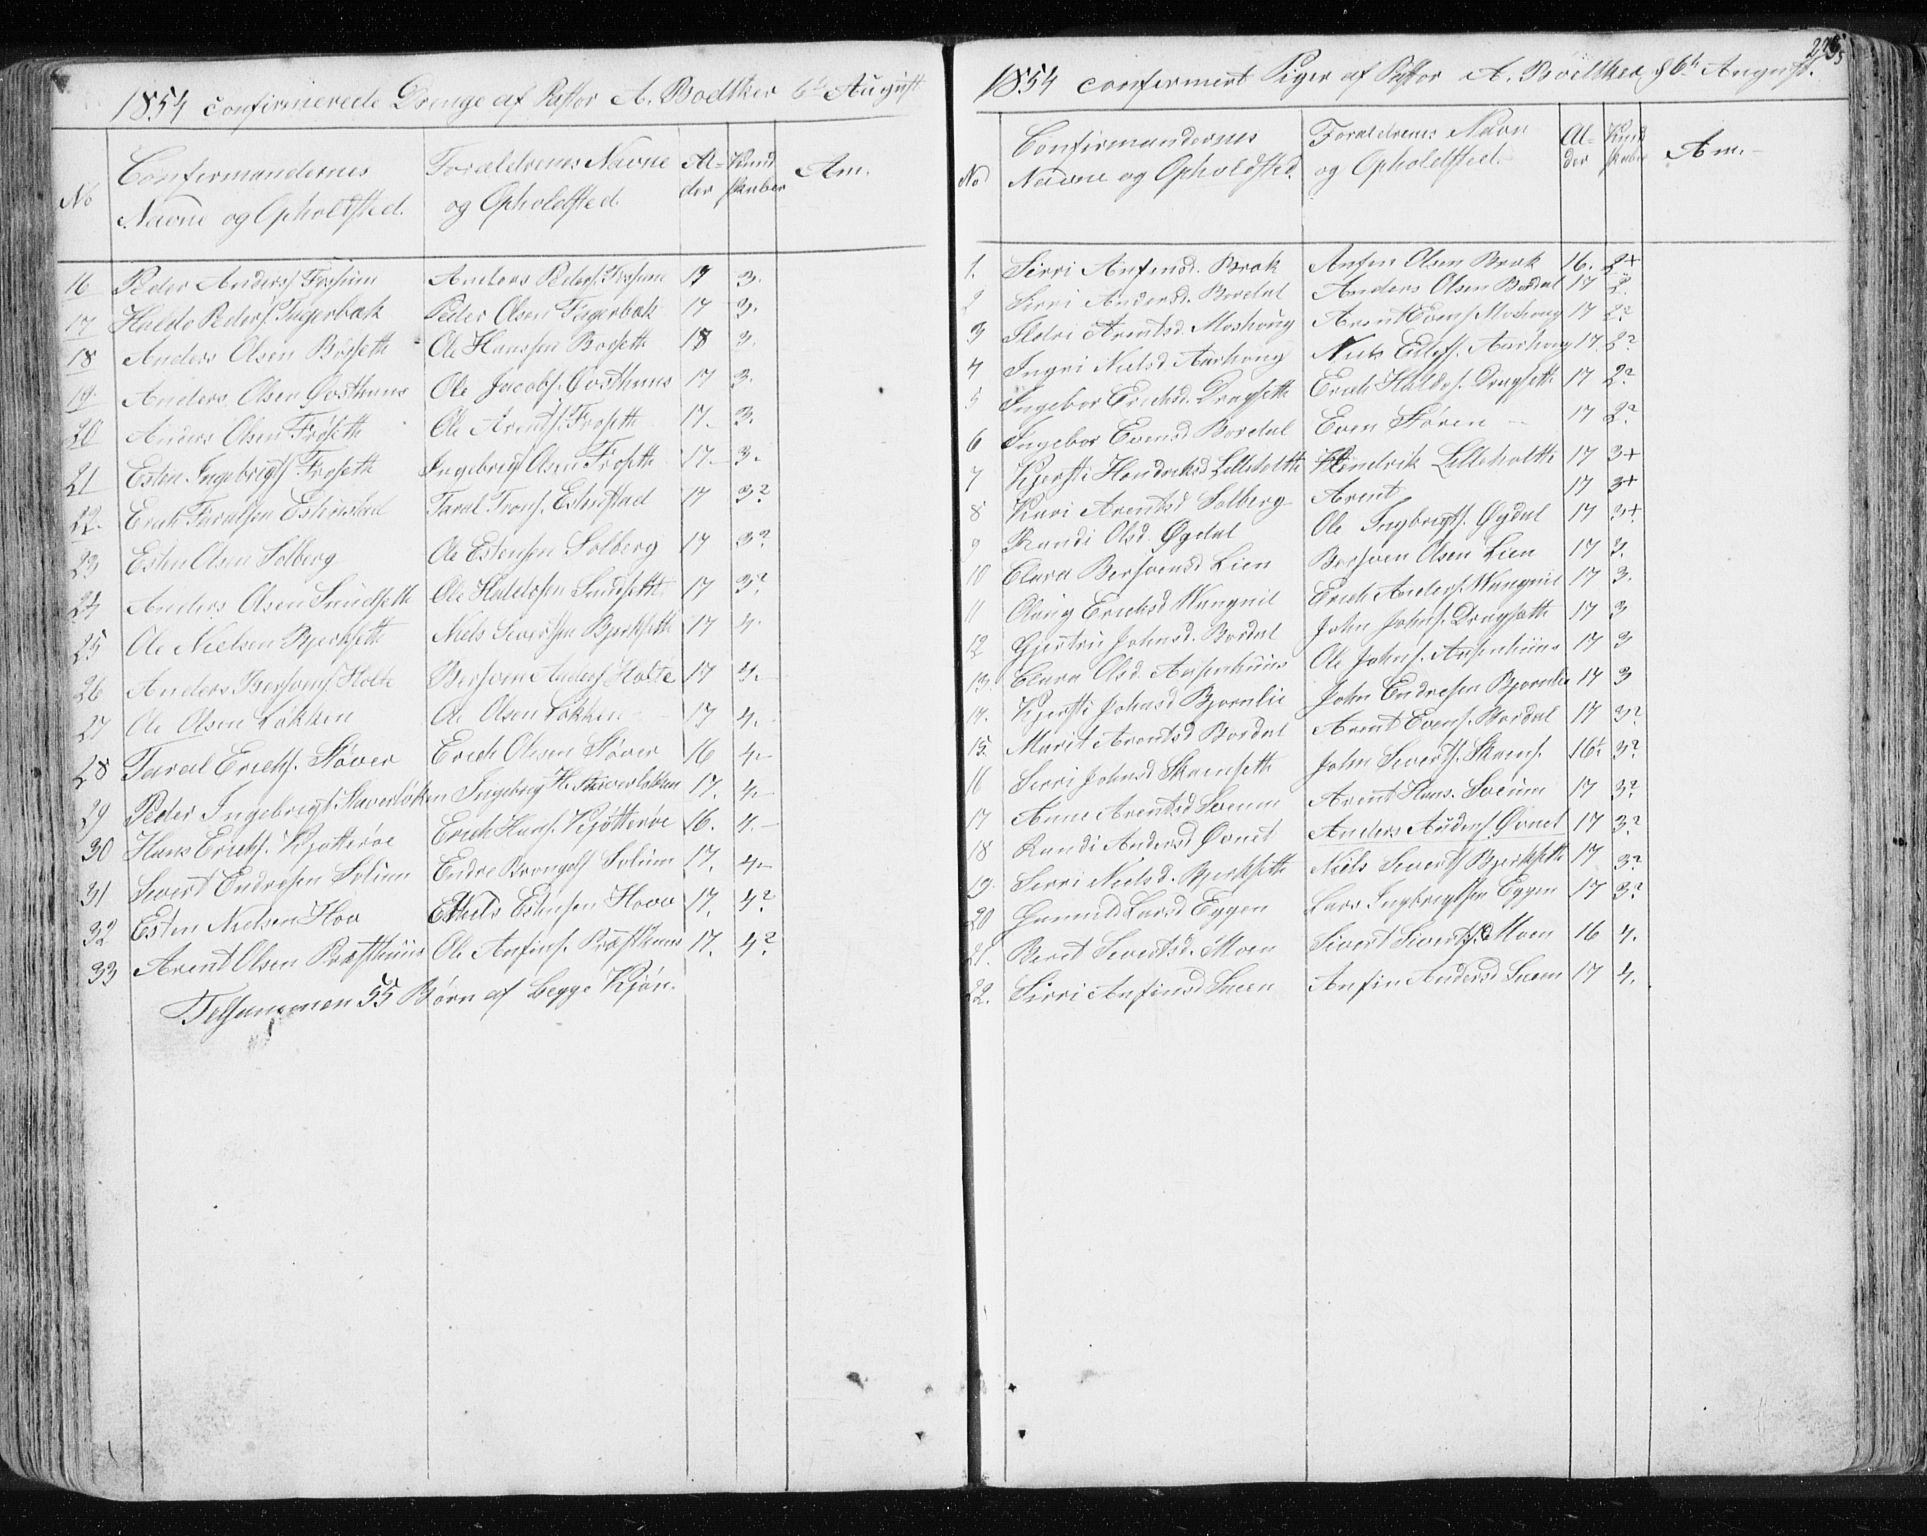 1854 confirmerede Drenge af Pastor A. Bödtker 6te August
No
Confirmandernes
Navne og Opholdsted.
Foraldrenes Navne
og Opholdsted.
Al-
der
Kund
skaber
Am.
16 Peder Anders. Fossum Anders Peders. Fossum 17 3.
17 Haldo Peders. Fagerbak Peder Olsen Fagerbak 17 3.
18 Anders Olsen Bosseth Ole Hanssen Bosseth 18 3.
19 Anders Olsen Ole Jacobs. 17 3.
20 Anders Olsen Froseth Ole Arents. Froseth 17. 3.
21 Esten Ingebrigts Froseth Ingebrigt Olsen Froseth 17. 3.
22. Erich Taralsen Estenstad Taral Trons. Estenstad 17 3?
23 Esten Olsen Solberg Ole Estensen Solberg 17 3?
24 Anders Olsen Snudseth Ole Haldossen Snudseth 17 3?
25 Ole Nielsen Bjerkseth Niels Sivertsen Bjerkseth 17 4.
26 Anders Bersvens. Holte Bersven Anders Holte 17 4.-
27 Ole Olsen Løkken Ole Olsen Løkken 17 4.-
28 Taral Erichs. Støver Erich Olsen Støver 16 4-
29 Peder Ingebrigts. Staverløken Ingebrig H. Staverløkken 17. 4.-
30 Hans Erichs. Kjøtterøe Erich Hans. Kjøtterøe 16. 4.-
31 Sivert Endresen Solum Endre Solum 17. 4-
32 Esten Nielsen Hov Niels Estensen Hove 17. 4?
33 Arent Olsen Præsthuus Ole Anfins. Præsthuus 17. 4?
Tilsammen 55 Børn af begge Kjøn.
225
1854 confermert Piger af Pastor A. Bödtker d 6te August.
No
Confirmandernes
Navne og Opholdsted.
Foraldrenes Navn
og Opholdsted.
Al-
der
Kund
skaber
Am.-
1. Sirri Anfinsd. Brak Anfin Olsen Brak 16. 2+
2 Sirri Andersd. Bordal Anders Olsen Bordal 17 2.
3 Sldri Arentsd. Moshoug Arent Evens. Moshoug 17 2?
4 Ingri Nielsd Aarhoug Niels Ellefs. Aarhoug 17 2?
5 Ingebor Erichsd. Dragseth Erich Haldos. Dragseth 17 2?
6 Ingebor Evensd Bordal Even Støren 17 2?
7 Kjersti Hendriksd Lilleholtte Hendrik Lilleholtte 17 3+
8 Kari Arentsd Solberg Arent 17 3+
9 Randi Olsd. Øgdal Ole Ingbrigts. Øgdal 17 3+
10 Clara Bersvensd Lien Bersven Olsen Lien 17 3.
11 Olaug Erichsd Wangnil Erich Anders. Wangnil 17 3.
12 Gjertru Johnsd. Bordal John Johns. Dragseth 17 3
13. Clara Olsd. Aasenhuus Ole Johns. Aasenhuus 17 3
14. Kjersti Johnsd Bjørnlie John Endresen Bjørnlie 17 3
15. Marit Arentsd Bordal Arent Evens. Bordal 17 3?
16 Sirri Johnsd Skamseth John Siverts. Skams. 16½ 3?
17 Anne Arentsd Soeum Arent Hans. Soeum 17 3?
18 Randi Andersd Øvnet Anders Anders Øvnet 17 3?
19. Sirri Nielsd. Bjerkseth Niels Siverts Bjerkseth 17 3?
20 Gunild Larsd Eggen Lars Ingbrigtsen Eggen 17 3?
21. Beret Sivertsd. Moen Sivert Siverts. Moen 16 4.
22. Sirri Anfinsd Sneen Anfin Andersd Sneen 17 4.